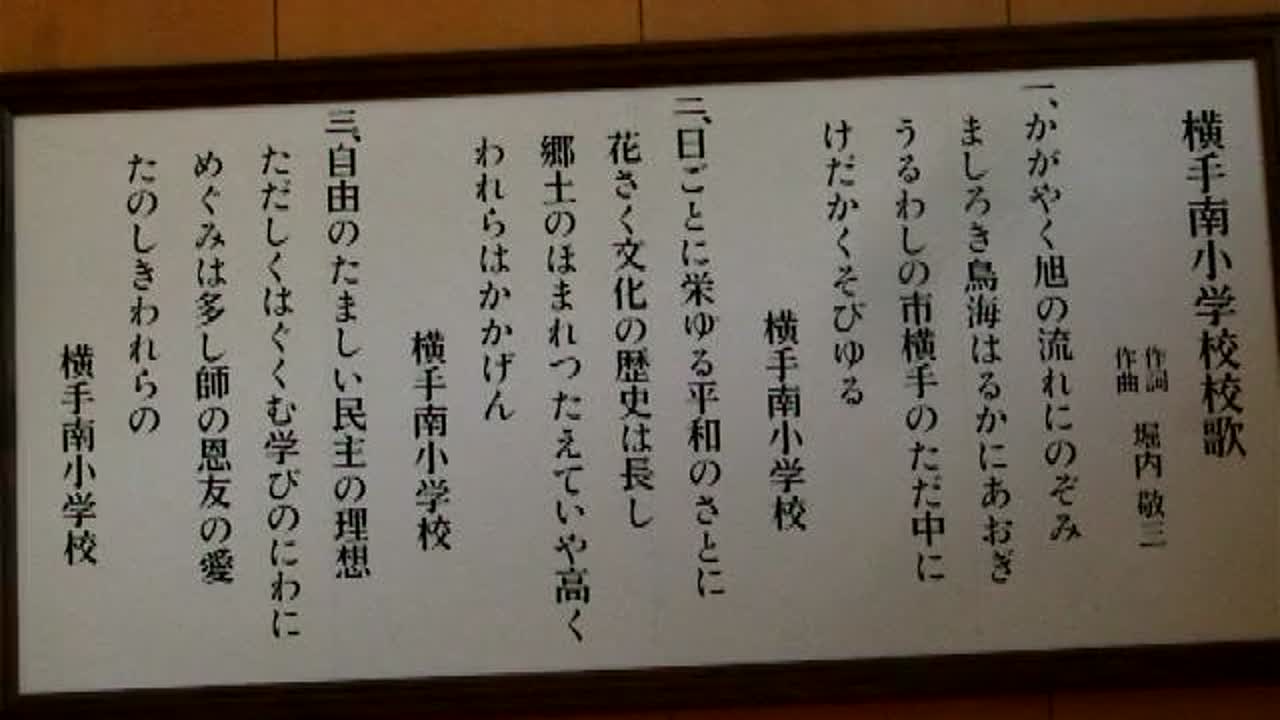 横手南小学校校歌
作詞
作曲
堀内 敬三
一、かがやく旭の流れにのぞみ
ましろき鳥海はるかにあおぎ
うるわしの市横手のただ中に
けだかくそびゆる
横手南小学校
二、日ごとに栄ゆる平和のさとに
花さく文化の歴史は長し
郷土のほまれつたえていや高く
われらはかかげん
横手南小学校
三、自由のたましい民主の理想
ただしくはぐくむ学びのにわに
めぐみは多し師の恩友の愛
たのしきわれらの
横手南小学校